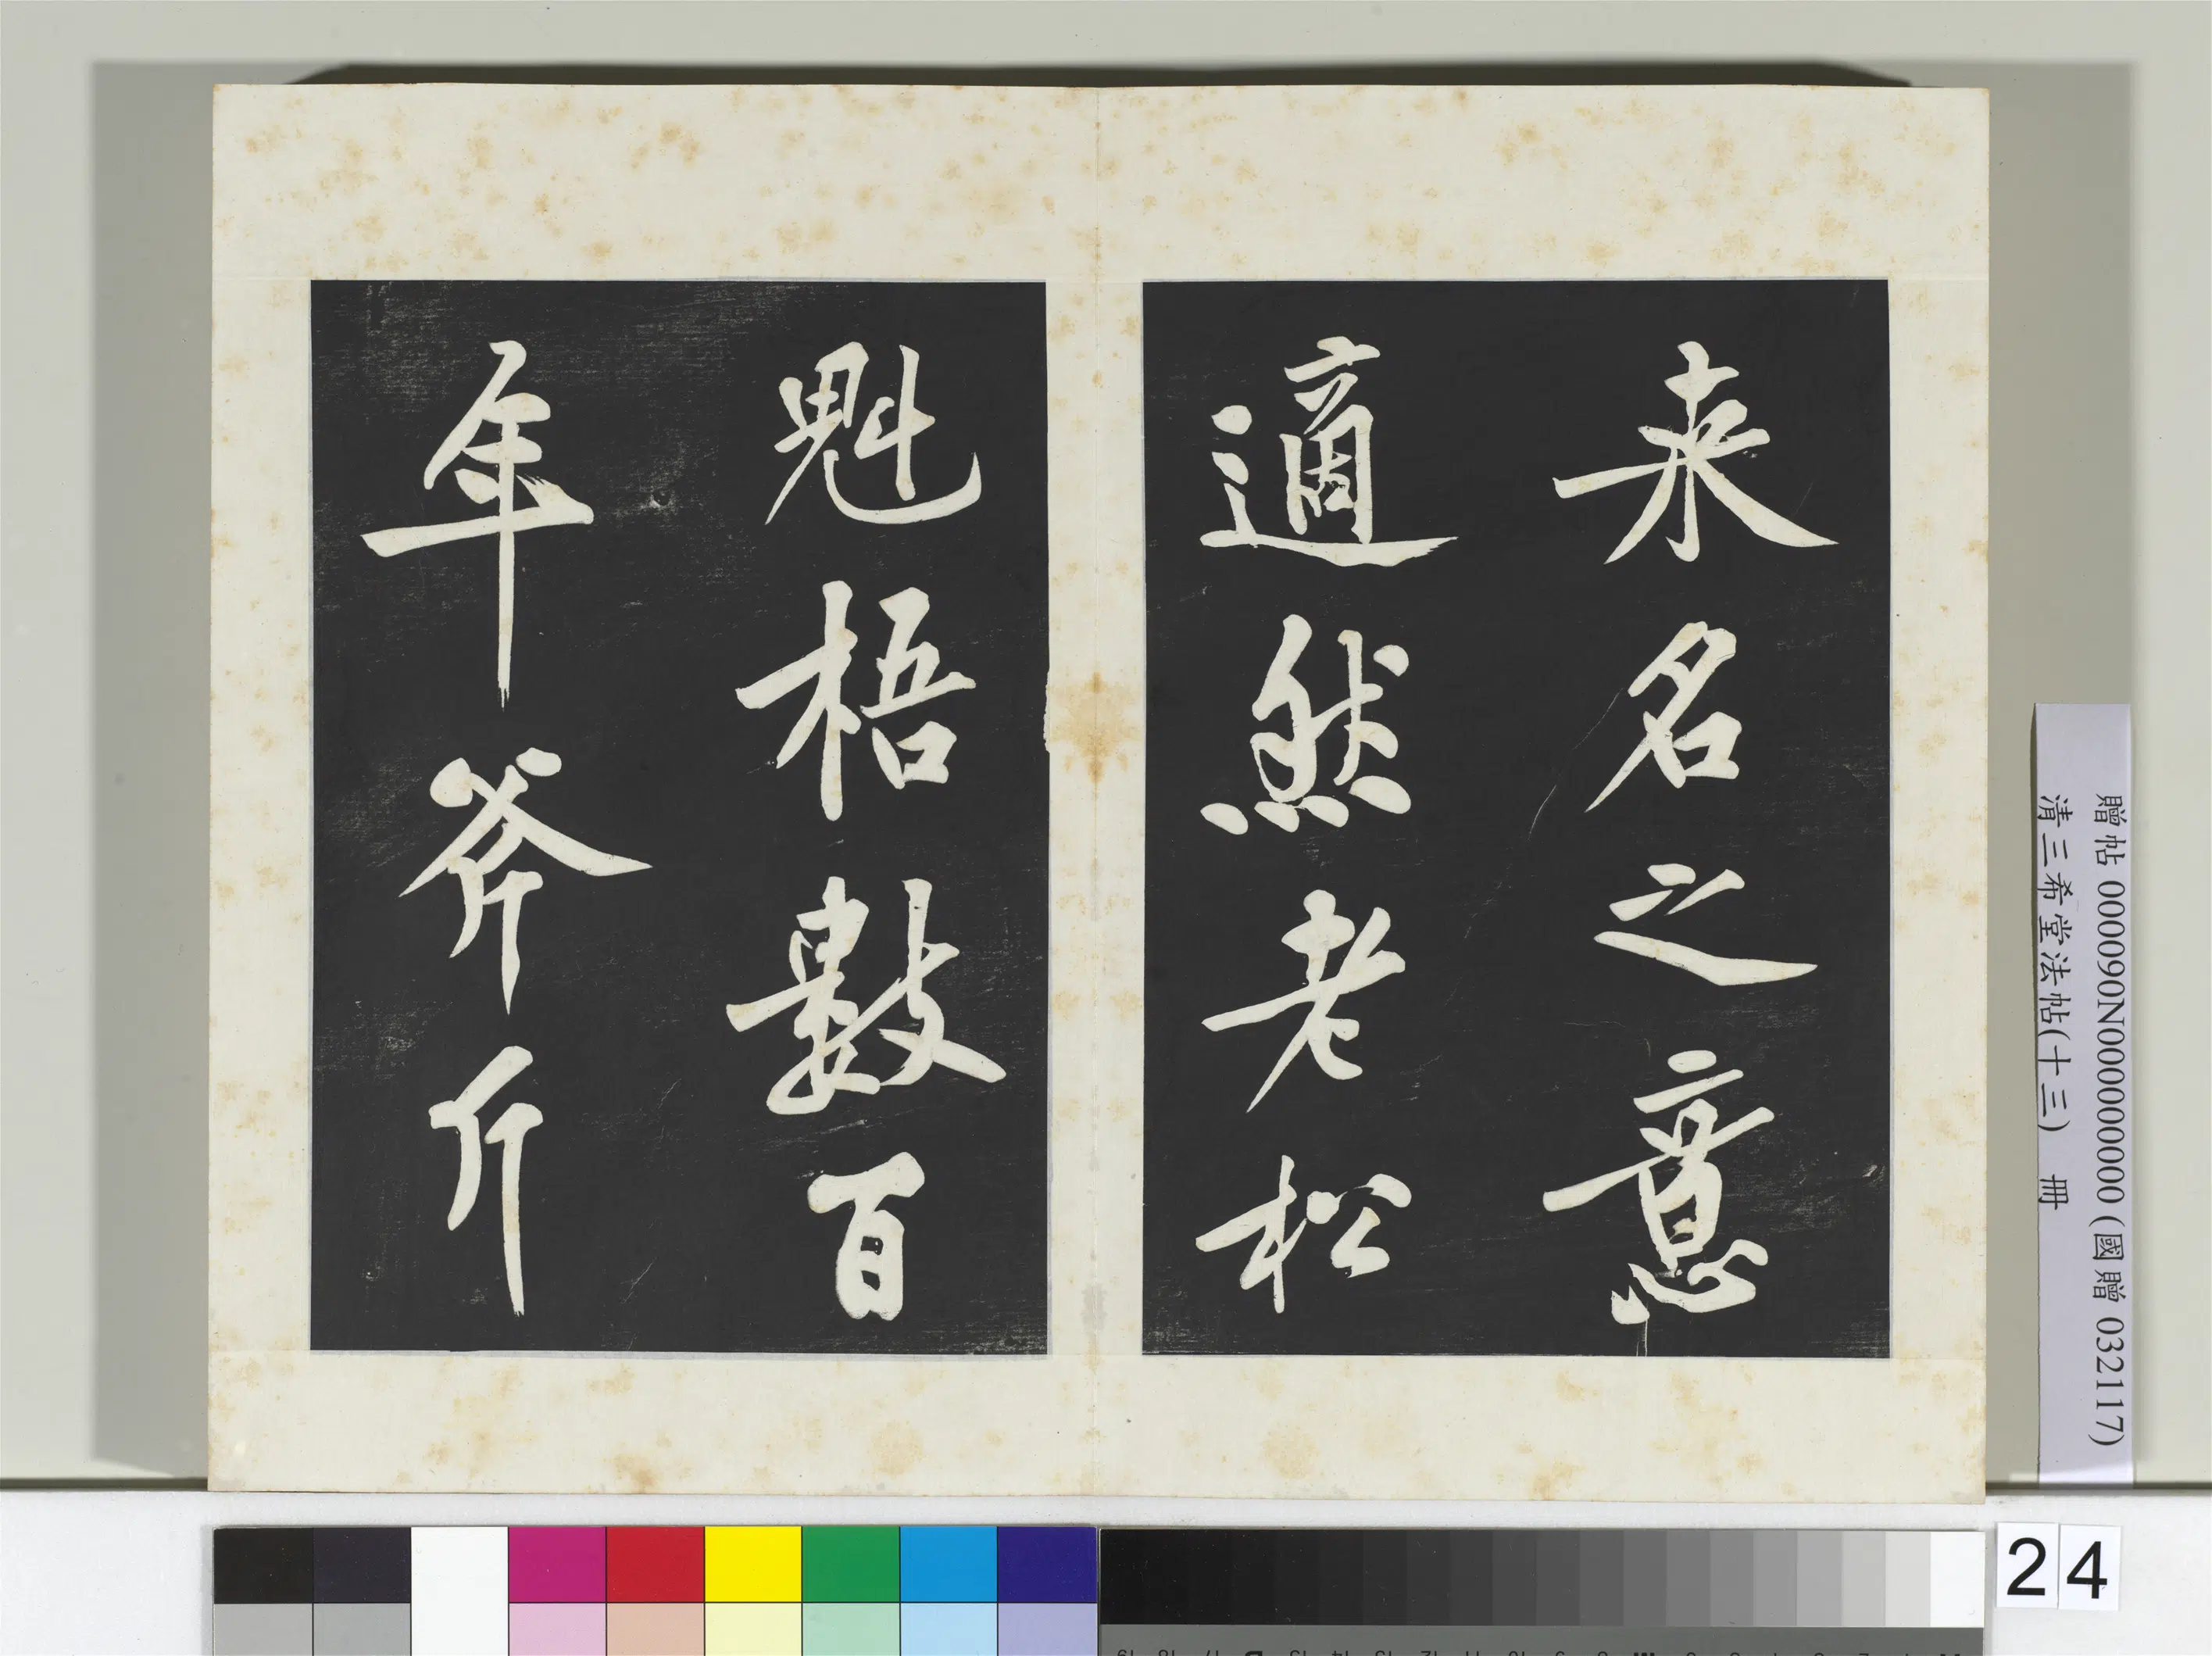 来名之意
適然老松
魁梧數百
年斧斤
贈帖 000090N000000000 (國贈 032117)
清三希堂法帖(十三) 冊
24